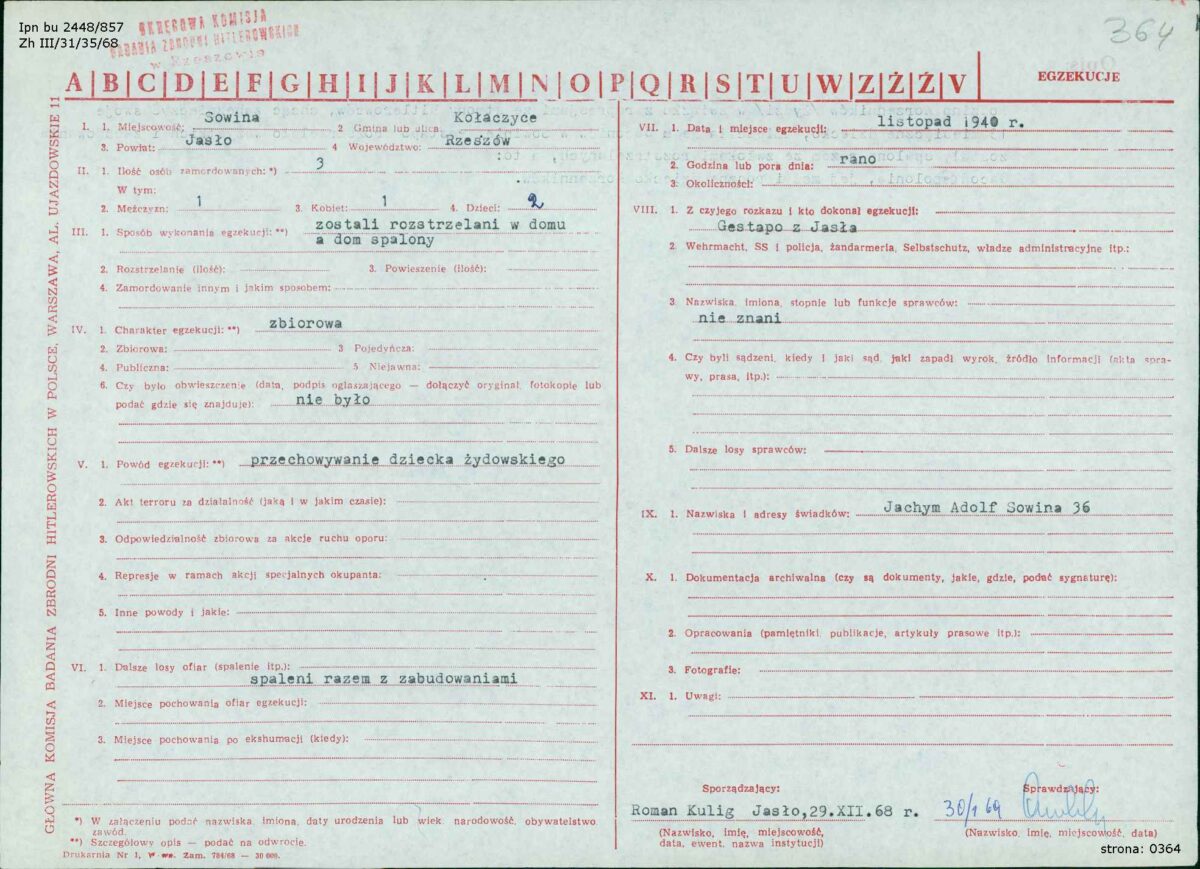 Ipn bu 2448/857
Zh III/31/35/68
OKRĘGOWA KOMISJA
BADANIA ZBRODNI HITLEROWSKICH
w Rzeszowie
364
A|B|C|D|E|F|G|H|I|J|K|L|M|N|O|P|Q|R|S|T|U|W|Z|Ż|Ź|V
EGZEKUCJE
GŁÓWNA KOMISJA BADANIA ZBRODNI HITLEROWSKICH W POLSCE, WARSZAWA, AL. UJAZDOWSKIE 11
I. 1. Miejscowość: Sowina 2 Gmina lub ulica: Kołaczyce
3. Powiat: Jasło 4 Województwo: Rzeszów
II. 1. Ilość osób zamordowanych:*) 3
W tym:
2. Mężczyzn: 1 3. Kobiet: 1 4. Dzieci: 2
III. 1. Sposób wykonania egzekucji:**) zostali rozstrzelani w domu
a dom spalony
2. Rozstrzelanie (ilość): 3. Powieszenie (ilość):
4. Zamordowanie innym i jakim sposobem:
IV. 1. Charakter egzekucji:**) zbiorowa
2. Zbiorowa: 3 Pojedyńcza:
4. Publiczna: 5 Niejawna:
6. Czy było obwieszczenie (data, podpis ogłaszającego — dołączyć oryginał, fotokopię lub
podać gdzie się znajduje): nie było
V. 1. Powód egzekucji:**) przechowywanie dziecka żydowskiego
2. Akt terroru za działalność (jaką i w jakim czasie):
3. Odpowiedzialność zbiorowa za akcje ruchu oporu:
4. Represje w ramach akcji specjalnych okupanta:
5. Inne powody i jakie:
VI. 1. Dalsze losy ofiar (spalenie itp.):
spaleni razem z zabudowaniami
2. Miejsce pochowania ofiar egzekucji:
3. Miejsce pochowania po ekshumacji (kiedy):
*) W załączeniu podać nazwiska, imiona, daty urodzenia lub wiek, narodowość, obywatelstwo,
zawód.
**) Szczegółowy opis — podać na odwrocie.
Drukarnia Nr 1, W-wa. Zam. 784/68 — 30 000.
VII. 1. Data i miejsce egzekucji: listopad 1940 r.
2. Godzina lub pora dnia: rano
3. Okoliczności:
VIII. 1. Z czyjego rozkazu i kto dokonał egzekucji:
Gestapo z Jasła
2. Wehrmacht, SS i policja, żandarmeria, Selbstschutz, władze administracyjne itp.:
3. Nazwiska, imiona, stopnie lub funkcje sprawców:
nie znani
4. Czy byli sądzeni, kiedy i jaki sąd, jaki zapadł wyrok, źródło informacji (akta spra-
wy, prasa, itp.):
5. Dalsze losy sprawców:
IX. 1. Nazwiska i adresy świadków: Jachym Adolf Sowina 36
X. 1. Dokumentacja archiwalna (czy są dokumenty, jakie, gdzie, podać sygnaturę):
2. Opracowania (pamiętniki, publikacje, artykuły prasowe itp.):
3. Fotografie:
XI. 1. Uwagi:
Sporządzający: Sprawdzający:
Roman Kulig Jasło,29.XII.68 r. 30/1 69
(Nazwisko, imię, miejscowość, (Nazwisko, imię, miejscowość, data)
data, ewent. nazwa instytucji)
strona: 0364